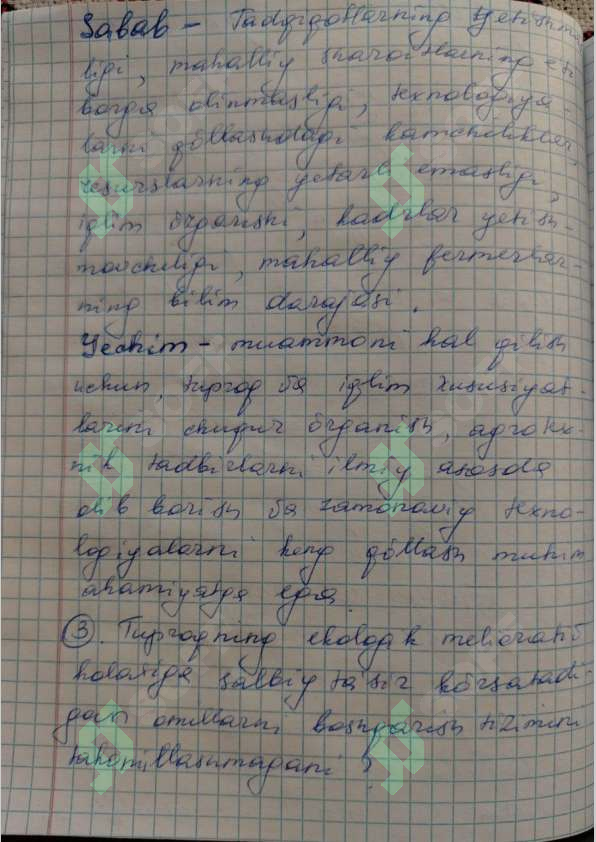 Sabab – Tadqiqotlarning yetishm
ligi, mahalliy sharoitlarning eti
borga olinmasligi, texnologiya
larni qõllashdagi kamchiliklar,
resurslarning yetarli emasligi,
iqlim õzgarishi, kadrlar yetish-
movchiligi, mahalliy fermerlar-
ning bilim darajasi.
Yechim – muammoni hal qilish
uchun, tuproq va iqlim xususiyat-
larini chuqur õrganish, agrotex-
nik tadbirlarni ilmiy asosda
olib borish va zamonaviy texno-
logiyalarni keng qõllash muhim
ahamiyatga ega.
3. Tuproqning ekologik meliorativ
holatiga salbiy ta'sir kõrsatadi-
gan omillarni boshqarish tizimini
takomillashmagani?